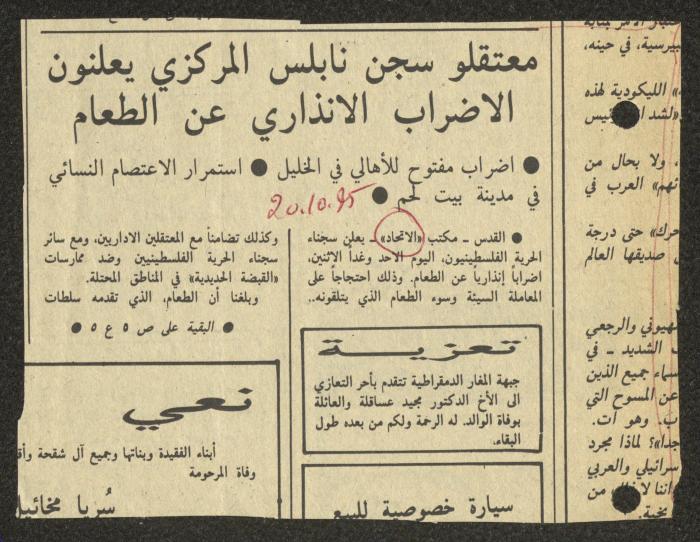 معتقلو سجن نابلس المركزي يعلنون
الاضراب الانذاري عن الطعام
● اضراب مفتوح للأهالي في الخليل ● استمرار الاعتصام النسائي
في مدينة بيت لحم ●
20.10.85
● القدس ـ مكتب «الاتحاد» ـ يعلن سجناء
الحرية الفلسطينيون، اليوم الأحد وغداً الاثنين،
اضراباً إنذارياً عن الطعام. وذلك احتجاجاً على
المعاملة السيئة وسوء الطعام الذي يتلقونه..
وكذلك تضامناً مع المعتقلين الاداريين، ومع سائر
سجناء الحرية الفلسطينيين وضد ممارسات
«القبضة الحديدية» في المناطق المحتلة.
وبلغنا أن الطعام، الذي تقدمه سلطات
● البقية على ص ٥ ع ٥ ●
تعزية
جبهة المغار الدمقراطية تتقدم بأحر التعازي
الى الأخ الدكتور مجيد عساقلة والعائلة
بوفاة الوالد. له الرحمة ولكم من بعده طول
البقاء.
سيارة خصوصية للبيع
نعي
أبناء الفقيدة وبناتها وجميع آل شقحة
وفاة المرحومة
سُريا مخائيل
في حينه،
الليكودية لهذه
ولا بحال من
العرب في
حتى درجة
صديقها العالم
والرجعي
الشديد ـ في
جميع الذين
عن المسوح التي
وهو ات.
لماذا مجرد
والعربي
من